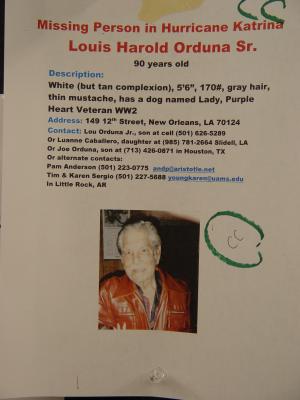 Missing Person in Hurricane Katrina
Louis Harold Orduna Sr.
90 years old
Description:
White (but tan complexion), 5'6", 170#, gray hair,
thin mustache, has a dog named Lady, Purple
Heart Veteran WW2
Address: 149 12th Street, New Orleans, LA 70124
Contact: Lou Orduna Jr., son at cell (501) 626-5289
Or Luanne Caballero, daughter at (985) 781-2664 Slidell, LA
Or Joe Orduna, son at (713) 426-0871 in Houston, TX
Or alternate contacts:
Pam Anderson (501) 223-0775 andp@aristotle.net
Tim & Karen Sergio (501) 227-5688 youngkaren@uams.edu
In Little Rock, AR
CC